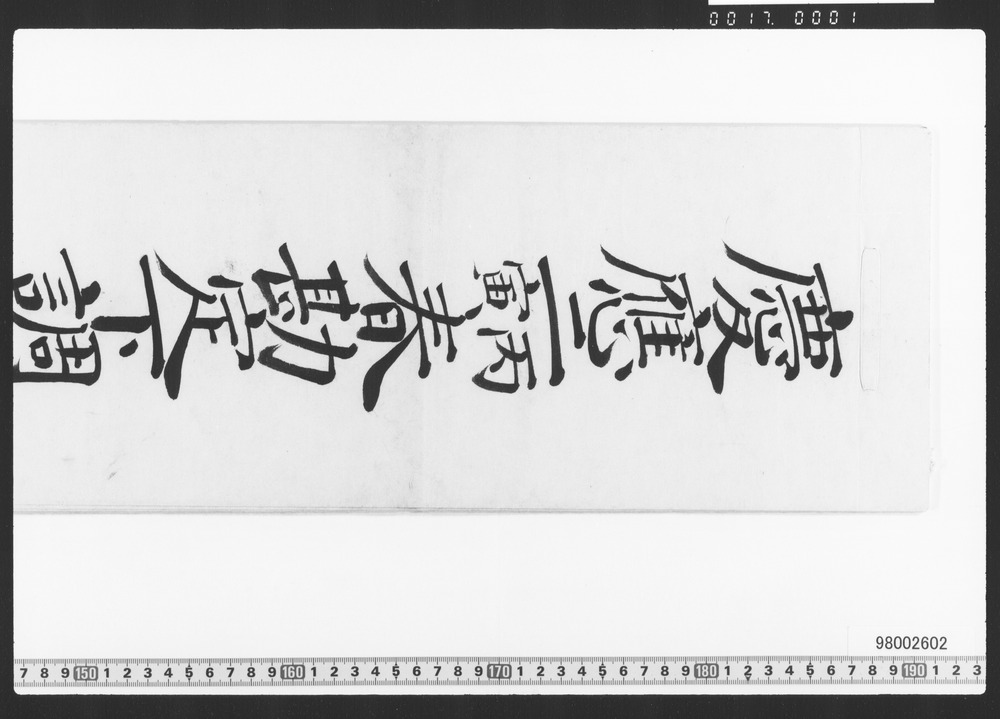 0017. 0001
慶應二丙寅春勘定下調
98002602
7 8 9 150 1 2 3 4 5 6 7 8 9 160 1 2 3 4 5 6 7 8 9 170 1 2 3 4 5 6 7 8 9 180 1 2 3 4 5 6 7 8 9 190 1 2 3